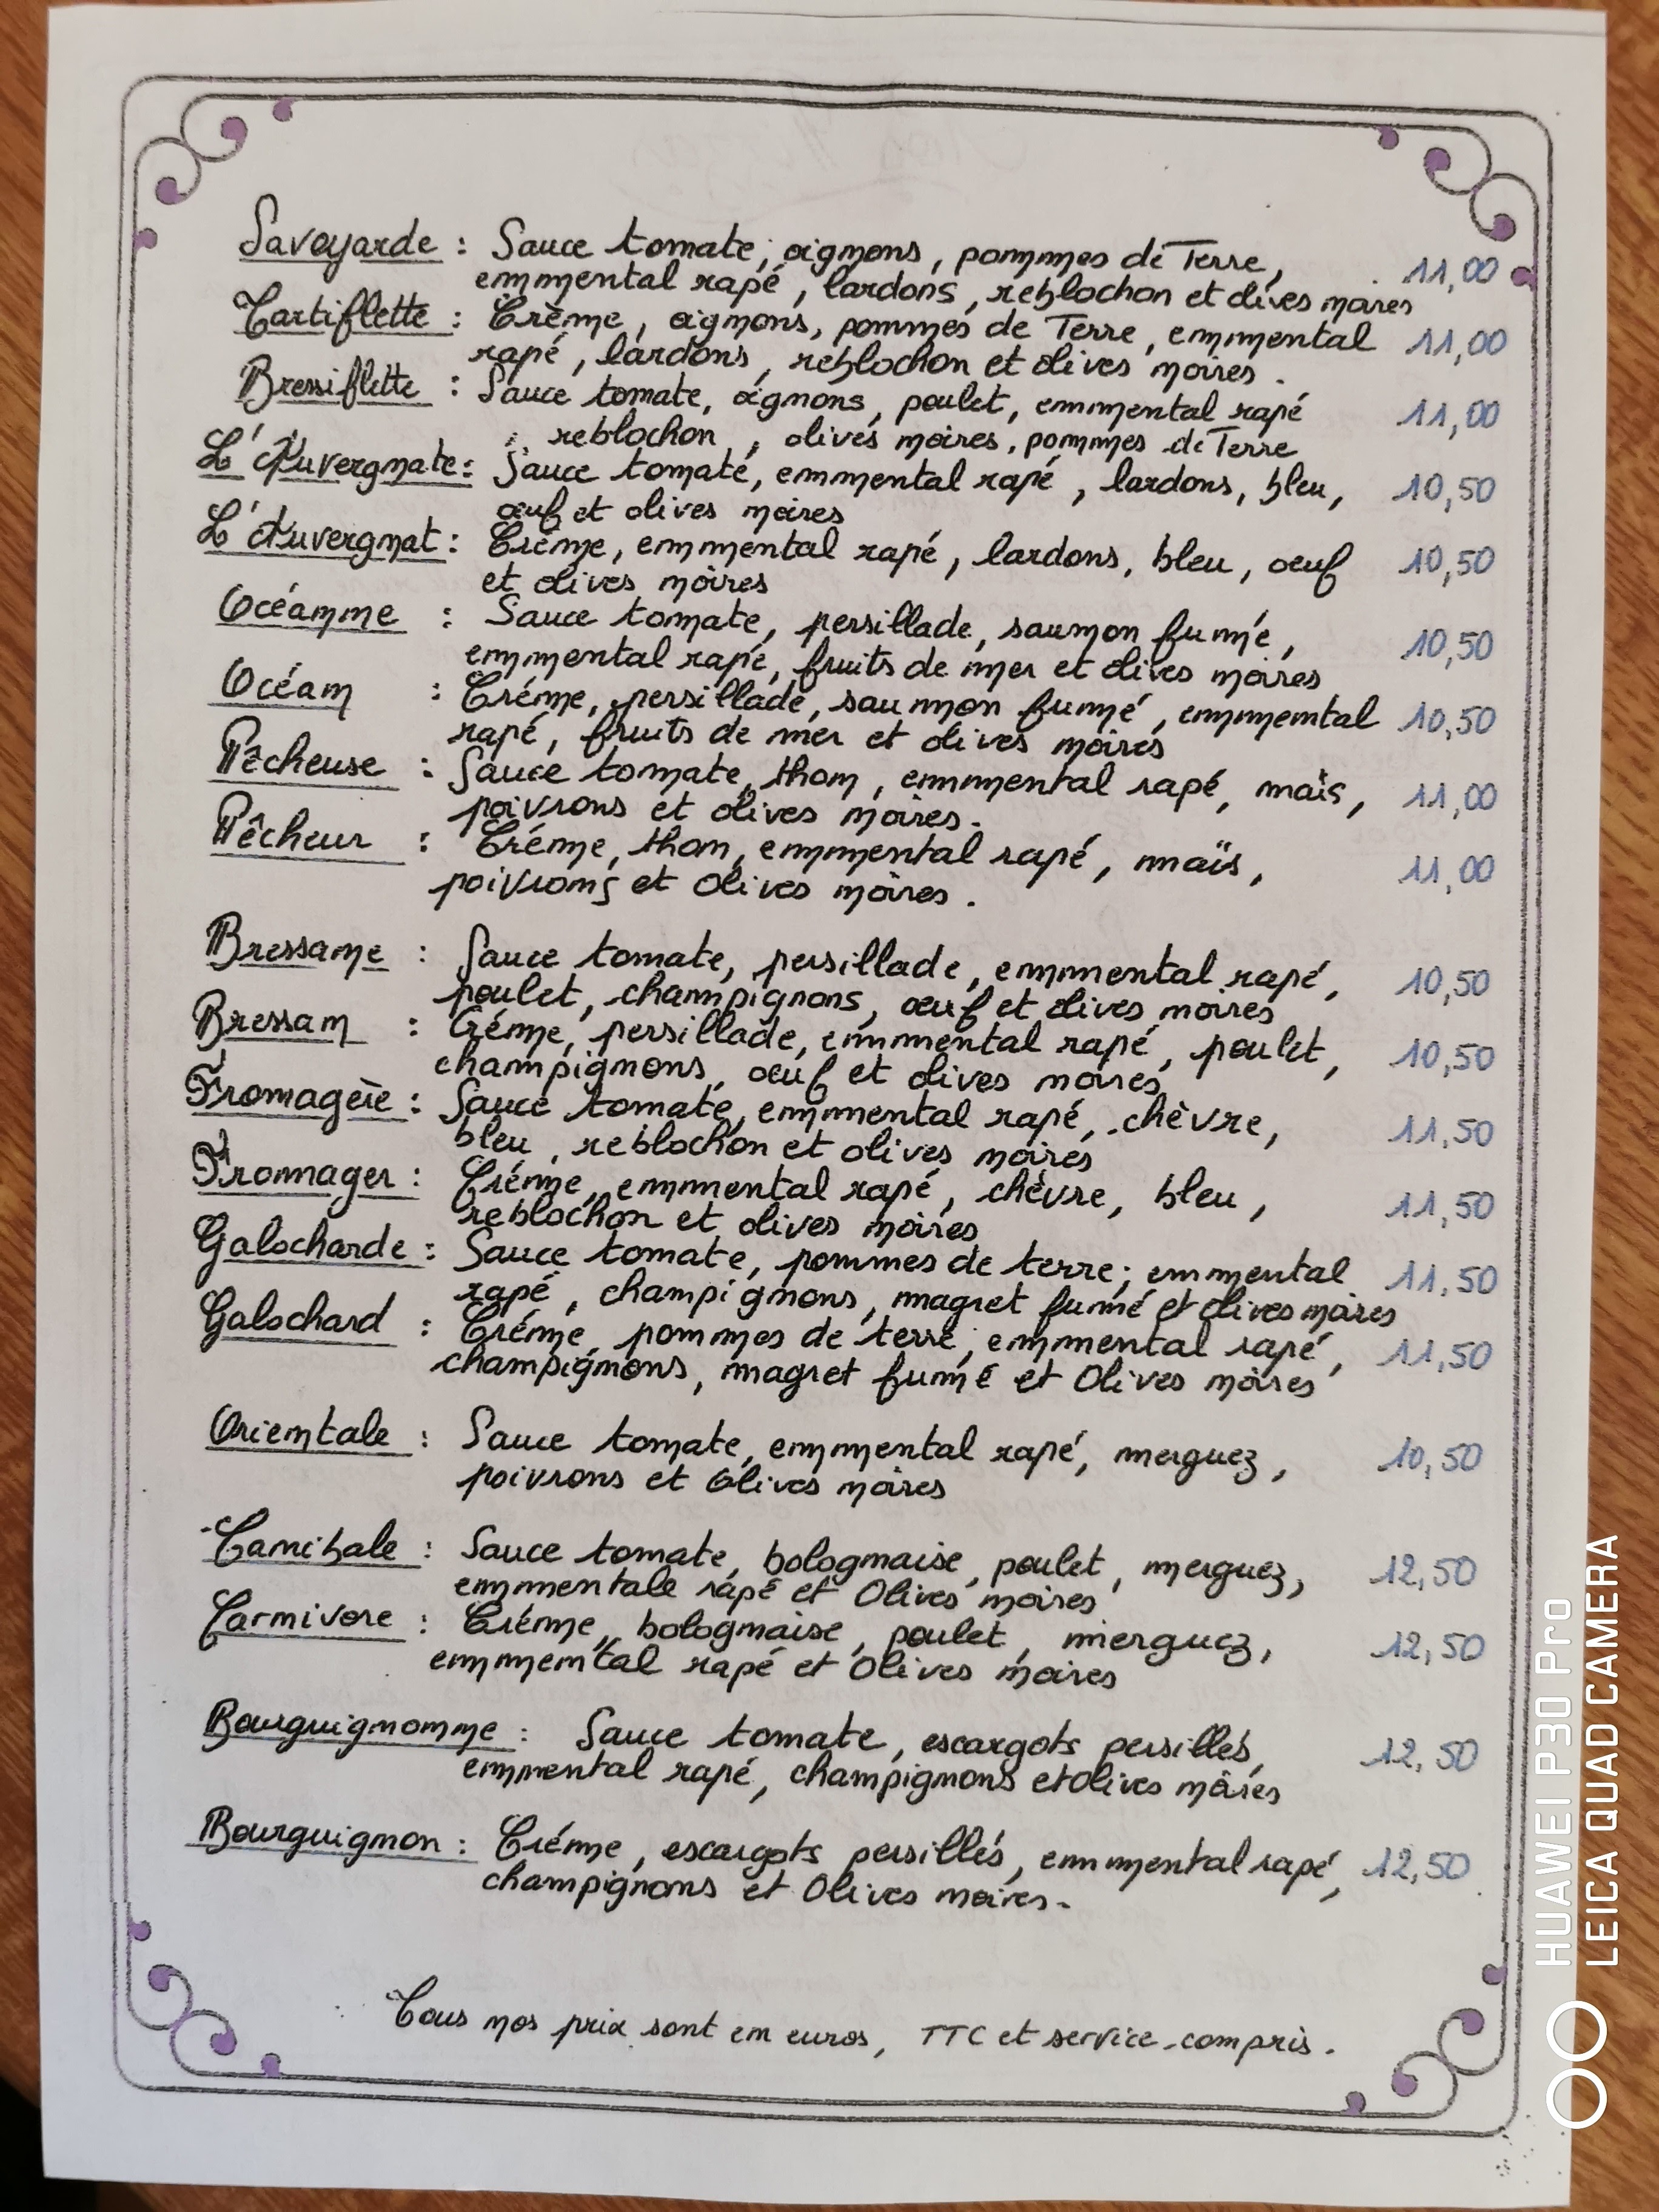 Savoyarde : Sauce tomate, oignons, pommes de Terre, 11,00
emmental rapé, lardons, reblochon et olives noires
Tartiflette : Crème, oignons, pommes de Terre, emmental 11,00
rapé, lardons, reblochon et olives noires.
Bressiflette : Sauce tomate, oignons, poulet, emmental rapé 11,00
, reblochon, olives noires, pommes de Terre
L'Auvergnate : Sauce tomate, emmental rapé, lardons, bleu, 10,50
œuf et olives noires
L'Auvergnat : Crème, emmental rapé, lardons, bleu, oeuf 10,50
et olives noires
Océanne : Sauce tomate, persillade, saumon fumé, 10,50
emmental rapé, fruits de mer et olives noires
Océan : Créme, persillade, saumon fumé, emmental 10,50
rapé, fruits de mer et olives noires
Pêcheuse : Sauce tomate, thon, emmental rapé, maïs, 11,00
poivrons et olives noires.
Pêcheur : Créme, thon, emmental rapé, maïs, 11,00
poivrons et Olives noires.
Bressane : Sauce tomate, persillade, emmental rapé, 10,50
poulet, champignons, œuf et olives noires
Bressan : Créme, persillade, emmental rapé, poulet, 10,50
champignons, oeuf et olives noires
Fromagère : Sauce tomate, emmental rapé, chèvre, 11,50
bleu, reblochon et olives noires
Fromager : Créme, emmental rapé, chèvre, bleu, 11,50
reblochon et olives noires
Galocharde : Sauce tomate, pommes de terre, emmental 11,50
rapé, champignons, magret fumé et olives noires
Galochard : Créme, pommes de terre, emmental rapé, 11,50
champignons, magret fumé et Olives noires
Orientale : Sauce tomate, emmental rapé, merguez, 10,50
poivrons et Olives noires
Canibale : Sauce tomate, bolognaise, poulet, merguez, 12,50
emmentale rapé et Olives noires
Carnivore : Créme, bolognaise, poulet, merguez, 12,50
emmental rapé et Olives noires
Bourguignonne : Sauce tomate, escargots persillés, 12,50
emmental rapé, champignons et Olives noires
Bourguignon : Créme, escargots persillés, emmental rapé, 12,50
champignons et Olives noires.
Tous nos prix sont en euros, TTC et service compris.
HUAWEI P30 Pro
LEICA QUAD CAMERA